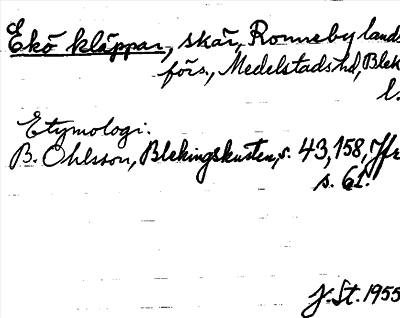 Ekö kläppar, skär, Ronneby lands
förs., Medelstads hd, Blek
l.
Etymologi.
B. Ohlsson, Blekingskusten, s. 43, 158, Jfr
s. 61.
J. St. 1955